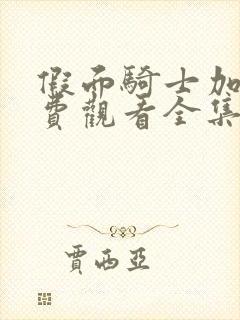 假而騎士加
費觀看全集
賈西亞